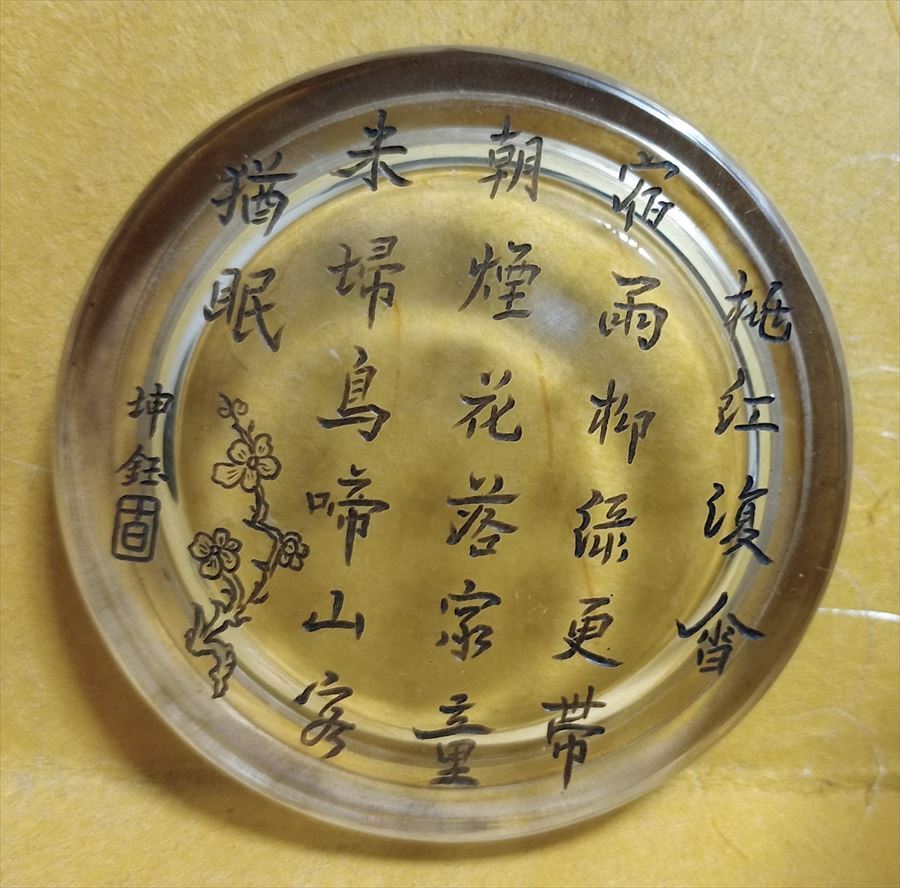 桃紅復含
宿雨柳綠更帶
朝煙花落家童
未掃鳥啼山客
猶眠
坤鈺
固